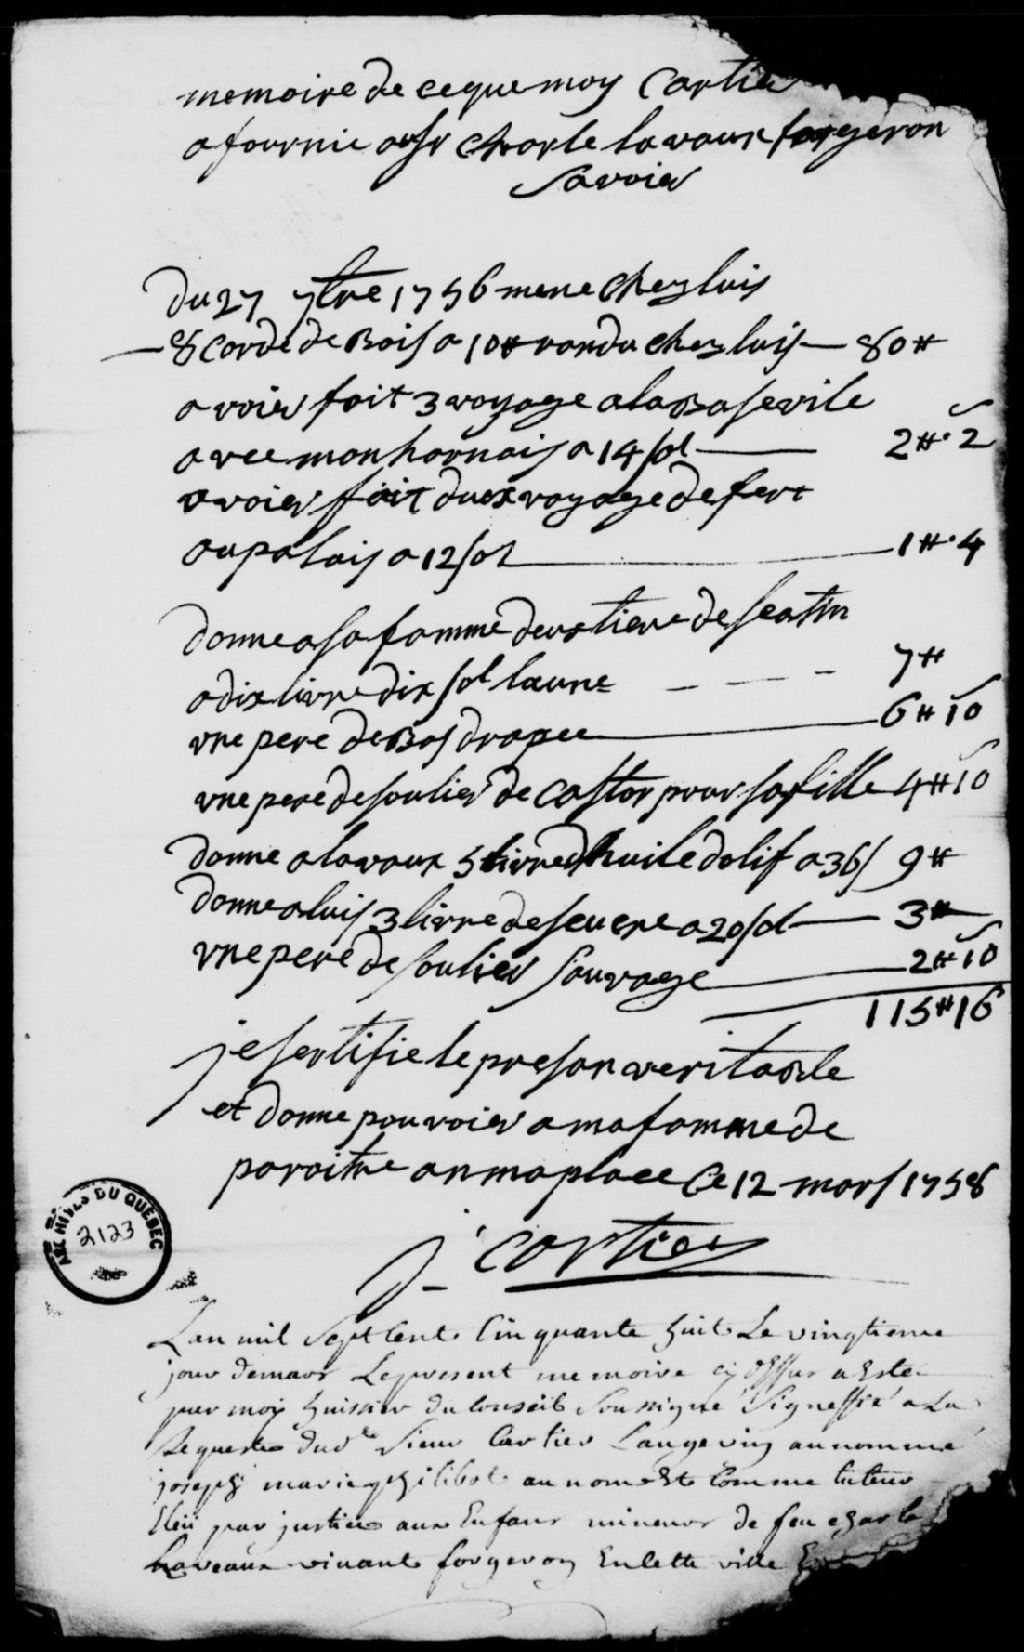 memoire de ce que moy Cartier
a fournie au sr charle lavaux forgeron
Savoier
du 27 7bre 1756 mene chez luis
8 corde de Bois a 10# randu chez luis 80#
avoier fait 3 voyage a la Basevile
avec mon harnois a 14 sol 2#.2 s
avoier fait duex voyage de fert
au palais a 12 sol 1#.4
donne a sa famme deux tiere de seatin
a dix livre dix sol laune 7#
vne pere de Bas drapee 6#10 s
vne pere de soulier de castor pour sa fille 4#10 s
donne a lavaux 5 livre dhuile dolif a 36 s 9#
donne a luis 3 livre de seucre a 20 sol 3#
vne pere de soulier sauvage 2#10 s
115#16
je sertifie le presan veritable
et donne pouvoier a ma famme de
paroitre an ma place Ce 12 mars 1758
j. cartier
ARCHIVES DU QUÉBEC
2123
Lan mil Sept Cent Cinquante huit Le vingtieme
jour de mars Le present memoire cy dessus a Esté
par moy huissier du Conseil Soussigné Signeffié a La
Requeste dud Sieur Cartier Langevin au nommé
joseph marie philibot au nom Et Comme tuteur
Eleü par justice aux Enfans mineurs de feu charle
Laveaux vivant forgeron En Cette ville